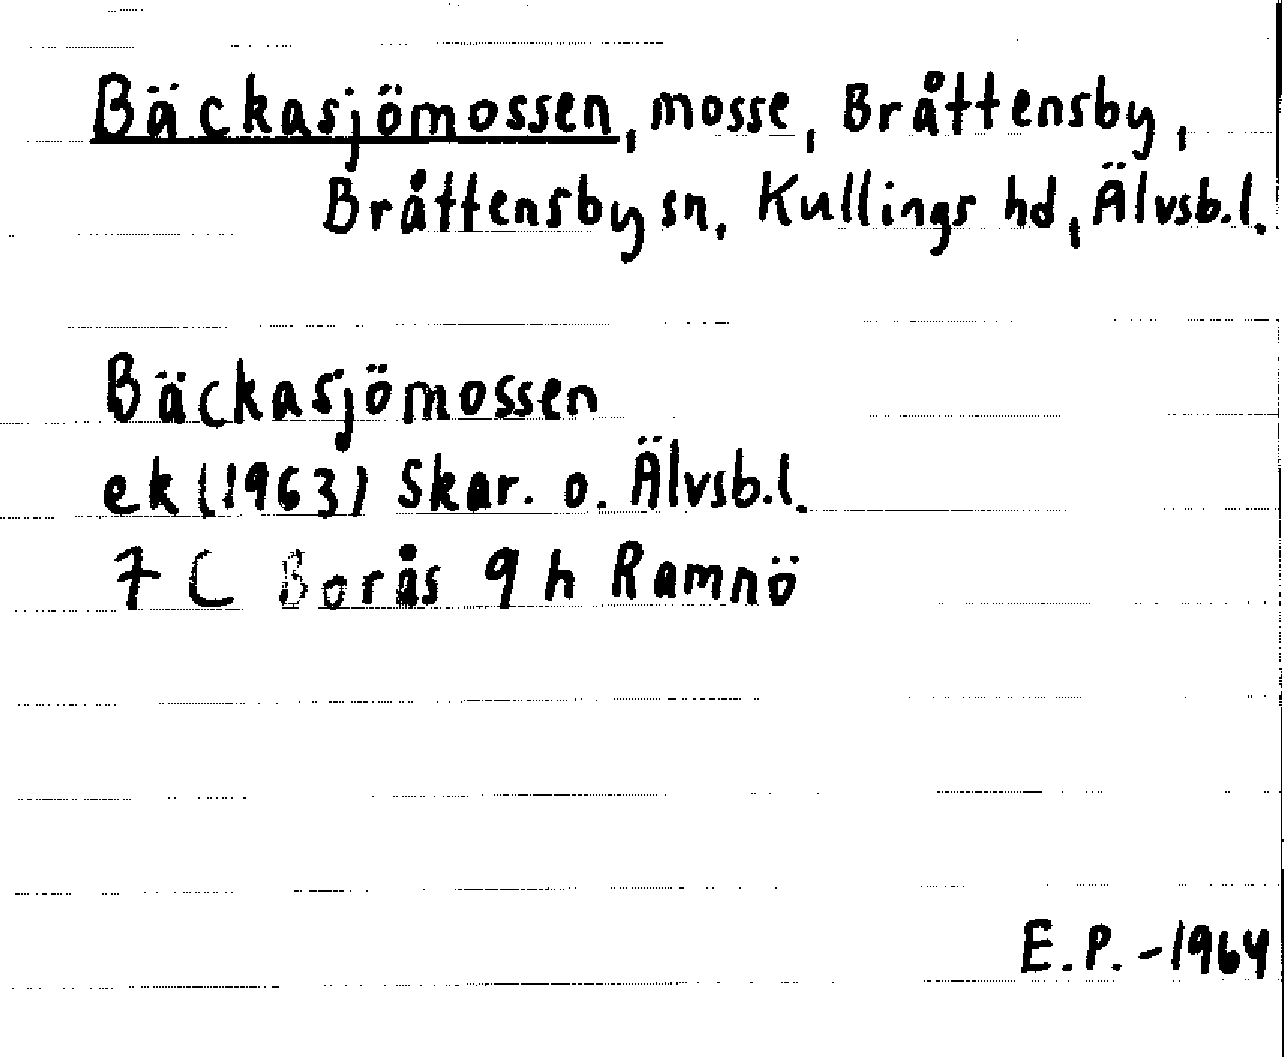 Bäckasjömossen, mosse, Bråttensby,
Bråttensby sn, Kullings hd, Älvsb.l.
Bäckasjömossen
ek (1963) Skar. o. Älvsb.l.
7 C Borås 9 h Ramnö
E.P. -1964